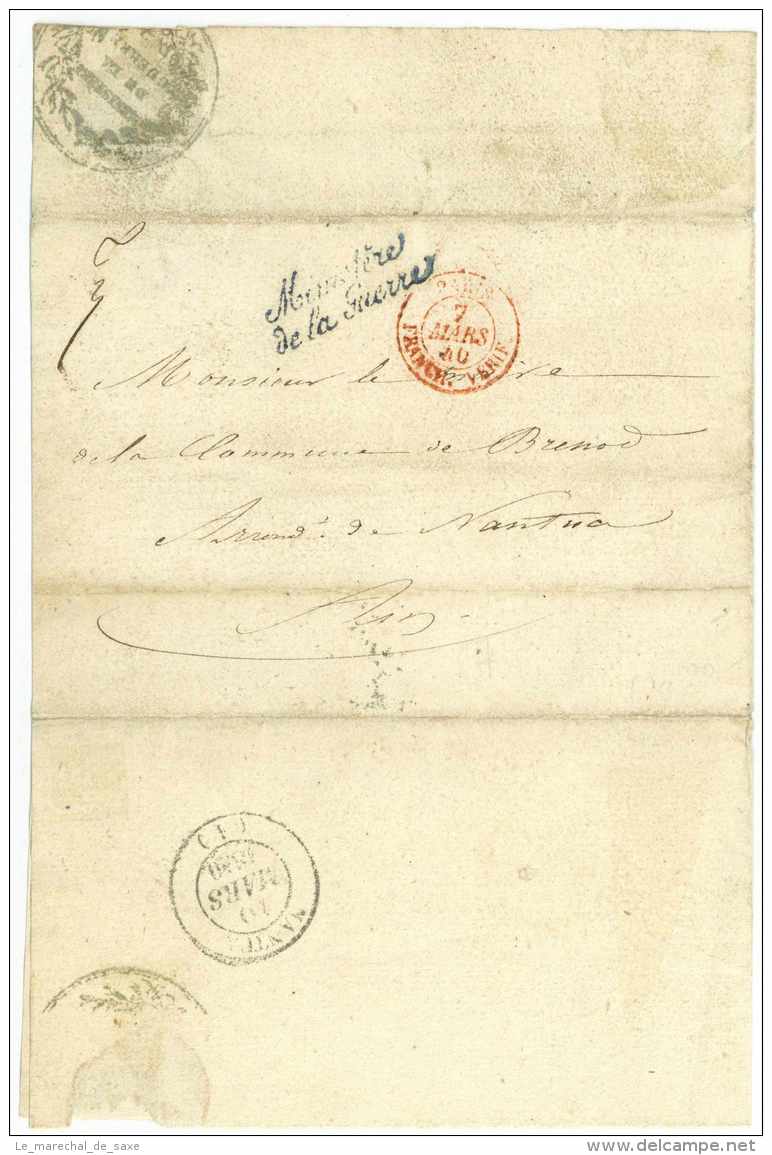 DE LA
Ministère
de la Guerre
PARIS
7
MARS
40
FRANCH. VERIF.
Monsieur le Maire
de la Commune de Brenod
Arrond.t de Nantua
Ain
(1)
1840
MARS
10
NANTUA
Le_marechal_de_saxe
www.delcampe.net